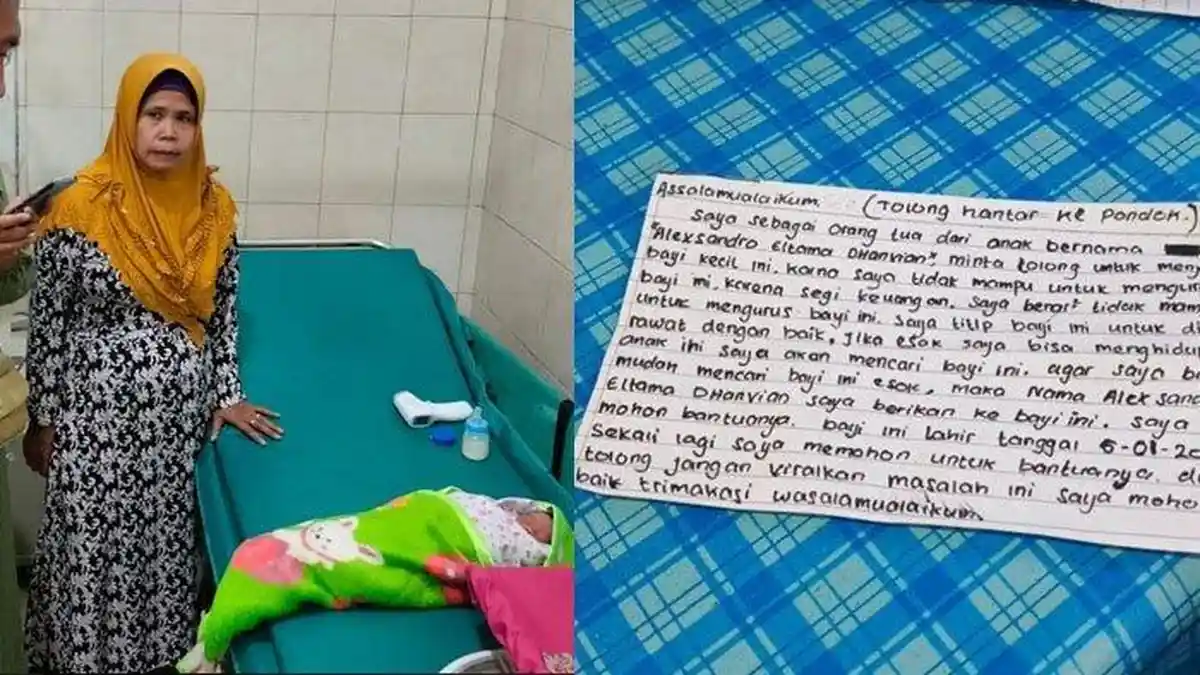 Assalamualaikum. (Tolong hantar ke pondok.)
Saya sebagai orang tua dari anak bernama
"Alexsandro Eltama Dharvian", minta tolong untuk
bayi kecil ini. Karna saya tidak mampu untuk
bayi ini. Karena segi keuangan. Saya benar² tidak
untuk mengurus bayi ini. Saya titip bayi ini untuk
rawat dengan baik. Jika esok saya bisa
anak ini saya akan mencari bayi ini. agar saya
mudah mencari bayi ini esok, maka Nama
Eltama Dharvian saya berikan ke bayi ini. Saya
mohon bantuanya. bayi ini lahir tanggal 6-01-
Sekali lagi saya memohon untuk bantuanya.
tolong jangan viralkan masalah ini saya
baik trimakasi wasalamualaikum.